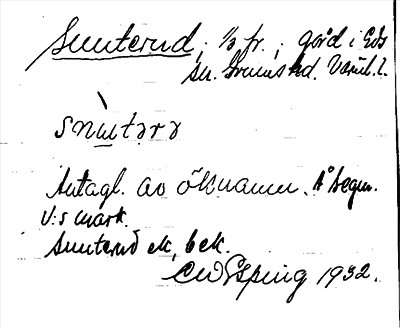 Smuterud, 1/3 fr., gård i Eds
sn. Grums hd. Värml. l.
snùtərə
Antagl. av öknamn. Å begm.
V:s mark.
Smuterud ek, bek.
CWEsping 1932.